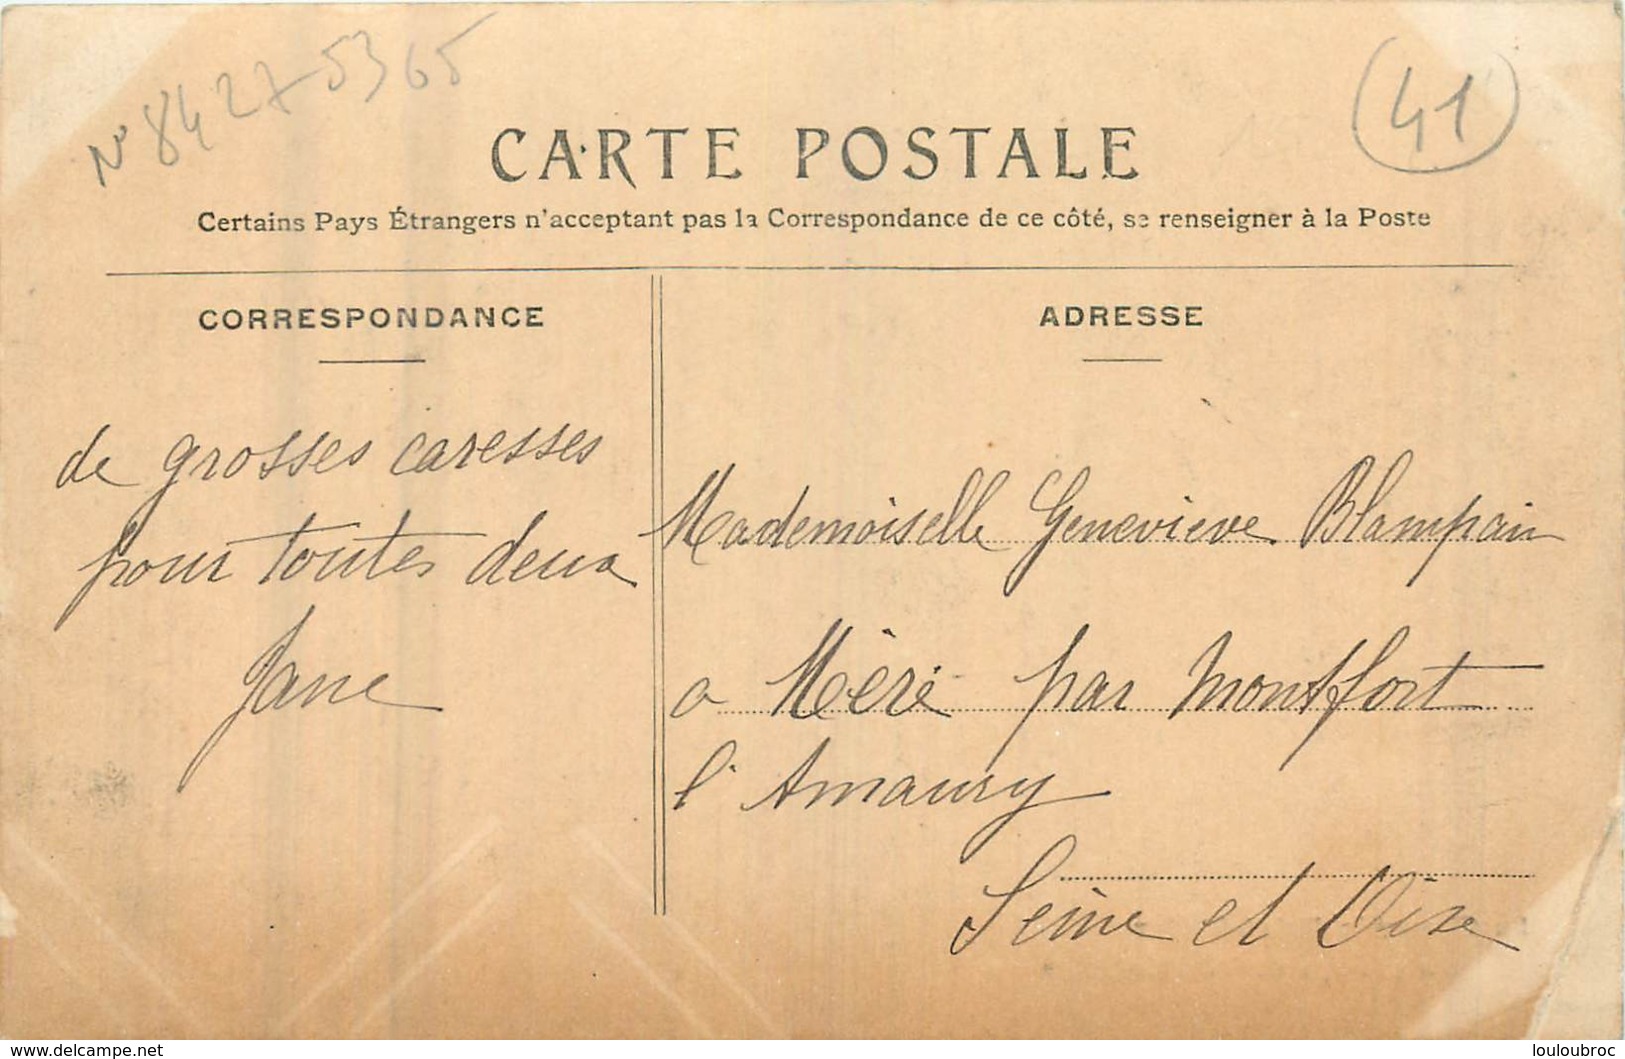 N° 842 7-5365
41
CARTE POSTALE
Certains Pays Étrangers n'acceptant pas la Correspondance de ce côté, se renseigner à la Poste
CORRESPONDANCE
de grosses caresses
pour toutes deux
Jane
ADRESSE
Mademoiselle Geneviève Blampain
a Mèré par Montfort
l'Amaury
Seine et Oise
www.delcampe.net
louloubroc